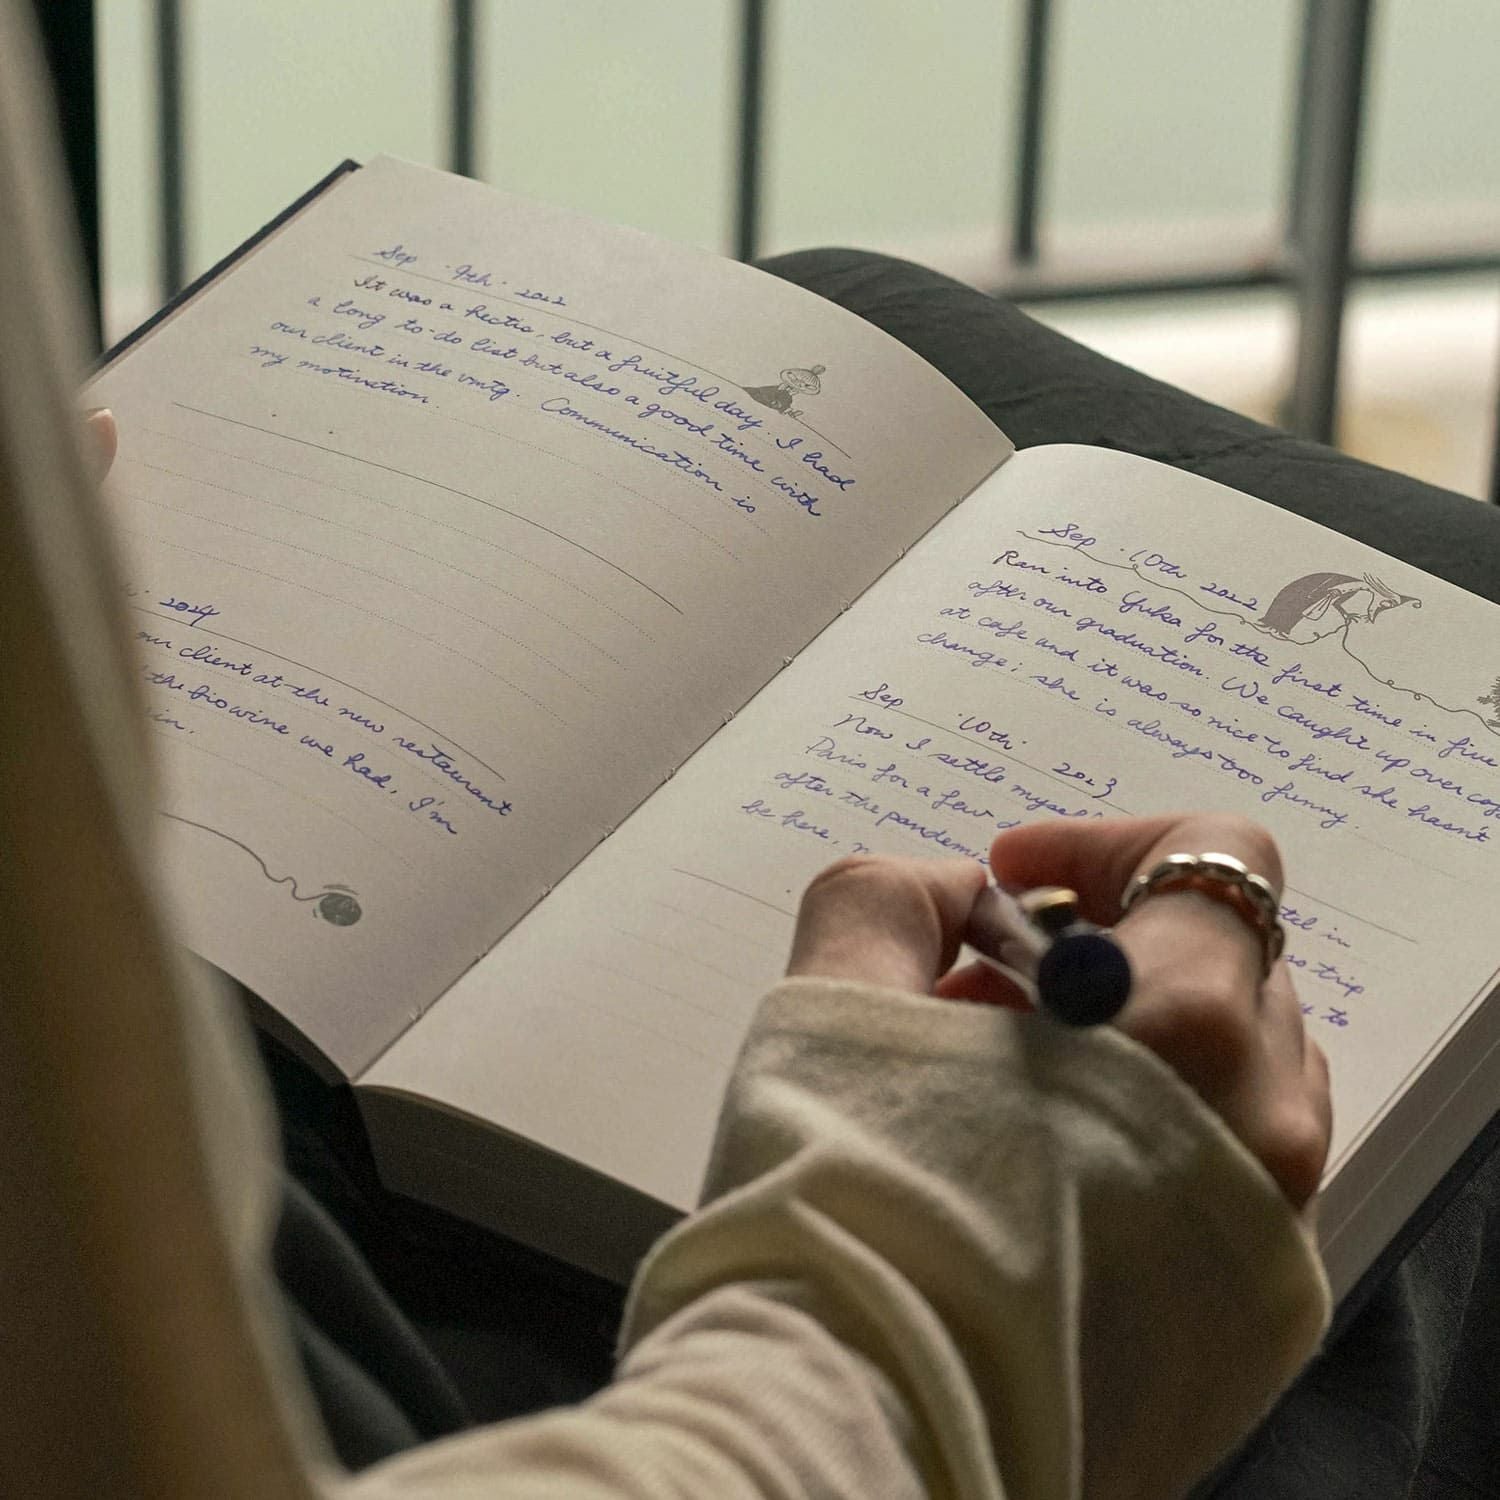 Sep . 9th . 2022
It was a hectic, but a fruitful day. I had
a long to-do list but also a good time with
our client in the vmtg. Communication is
my motivation.
2024
our client at the new restaurant
the bio wine we had, I'm
in.
Sep . 10th 2022
Ran into Yuka for the first time in five
after our graduation. We caught up over
at cafe and it was so nice to find she hasn't
change; she is always too funny.
Sep . 10th . 2023
Now I settle myself
Paris for a few
after the pandemic
be here,
in
trip
to